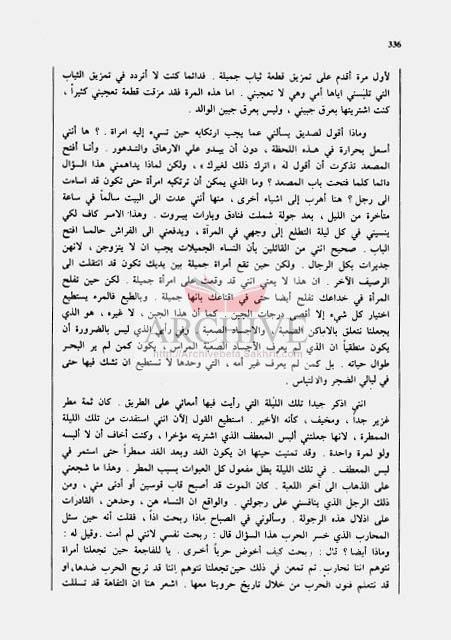 336
لأول مرة أقدم على تمزيق قطعة ثياب جميلة . فدائما كنت لا أتردد في تمزيق الثياب
التي تلبسني اياها أمي وهي لا تعجبني . اما هذه المرة فقد مزقت قطعة تعجبني كثيراً ،
كنت اشتريتها بعرق جبيني ، وليس بعرق جبين الوالد .
وماذا أقول لصديق يسألني عما يجب ارتكابه حين تسيء إليه امرأة . ؟ ها أنني
أسعل بحرارة في هذه اللحظة ، دون أن يبدو علي الارهاق والتدهور . وأنا أفتح
المصعد تذكرت أن أقول له «اترك ذلك لغيرك» ، ولكن لماذا يداهمني هذا السؤال
دائما كلما فتحت باب المصعد ؟ وما الذي يمكن أن ترتكبه امرأة حتى تكون قد اساءت
الى رجل ؟ هنا أهرب إلى اشياء أخرى ، منها أنني عدت الى البيت سالماً في ساعة
متأخرة من الليل ، بعد جولة شملت فنادق وبارات بيروت . وهذا الامر كاف لكي
ينسيني في كل ليلة التطلع إلى وجهي في المرآة ، ويدفعني الى الفراش حالما افتح
الباب . صحيح انني من القائلين بأن النساء الجميلات يجب ان لا يتزوجن ، لانهن
جديرات بكل الرجال . ولكن حين تقع أمرأة جميلة بين يديك تكون قد انتقلت الى
الرصيف الآخر . ان هذا لا يعني انني قد وقعت على امرأة جميلة . لكن حين تفلح
المرأة في خداعك تفلح أيضا حتى في اقناعك بأنها جميلة . وبالطبع فالمرء يستطيع
اختيار كل شيء إلا أقصى درجات الجبن . كما أن هذا الجبن ، لا غيره ، هو الذي
يجعلنا نتعلق بالاماكن الصعبة ، والاجساد الصعبة . وفي رأيي الذي ليس بالضرورة أن
يكون منطقياً ان الذي لم يعرف الأجساد الصعبة المراس ، يكون كمن لم ير البحر
طوال حياته . بل كمن لم يعرف غير أمه ، التي وحدها لا تستطيع ان تشك فيها حتى
في ليالي الضجر والالتباس .
انني أذكر جيدا تلك الليلة التي رأيت فيها أمعائي على الطريق . كان ثمة مطر
غزير جداً ، ومخيف ، كأنه الأخير . استطيع القول الآن انني استفدت من تلك الليلة
الممطرة ، لانها جعلتني ألبس المعطف الذي اشتريته مؤخرا ، وكنت أخاف أن لا ألبسه
ولو لمرة واحدة . وقد تمنيت حينها ان يكون الغد وبعد الغد ممطراً حتى استمر في
لبس المعطف . في تلك الليلة بطل مفعول كل العبوات بسبب المطر . وهذا ما شجعني
على الذهاب الى آخر اللعبة . كان الموت قد أصبح قاب قوسين أو أدنى مني ، ومن
ذلك الرجل الذي ينافسني على رجولتي . والواقع ان النساء هن ، وحدهن ، القادرات
على اذلال هذه الرجولة . وسألوني في الصباح ماذا ربحت اذاً ، فقلت أنه حين سئل
المحارب الذي خسر الحرب هذا السؤال قال : ربحت نفسي لأنني لم أمت . وقيل له :
وماذا أيضا ؟ قال : ربحت كيف أخوض حرباً أخرى . يا للفاجعة حين تجعلنا أمرأة
نتوهم اننا نحارب. ثم تمعن في ذلك حين تجعلنا نتوهم إننا قد نربح الحرب ضدها، او
قد نتعلم فنون الحرب من خلال تاريخ حروبنا معها . اشعر هنا ان التفاهة قد تسللت
ARCHIVE
http://Archivebeta.Sakhrit.com